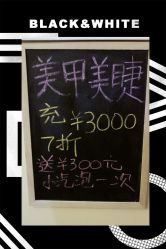 BLACK&WHITE
美甲美睫
充¥3000
7折
送¥300元
小汽泡一次